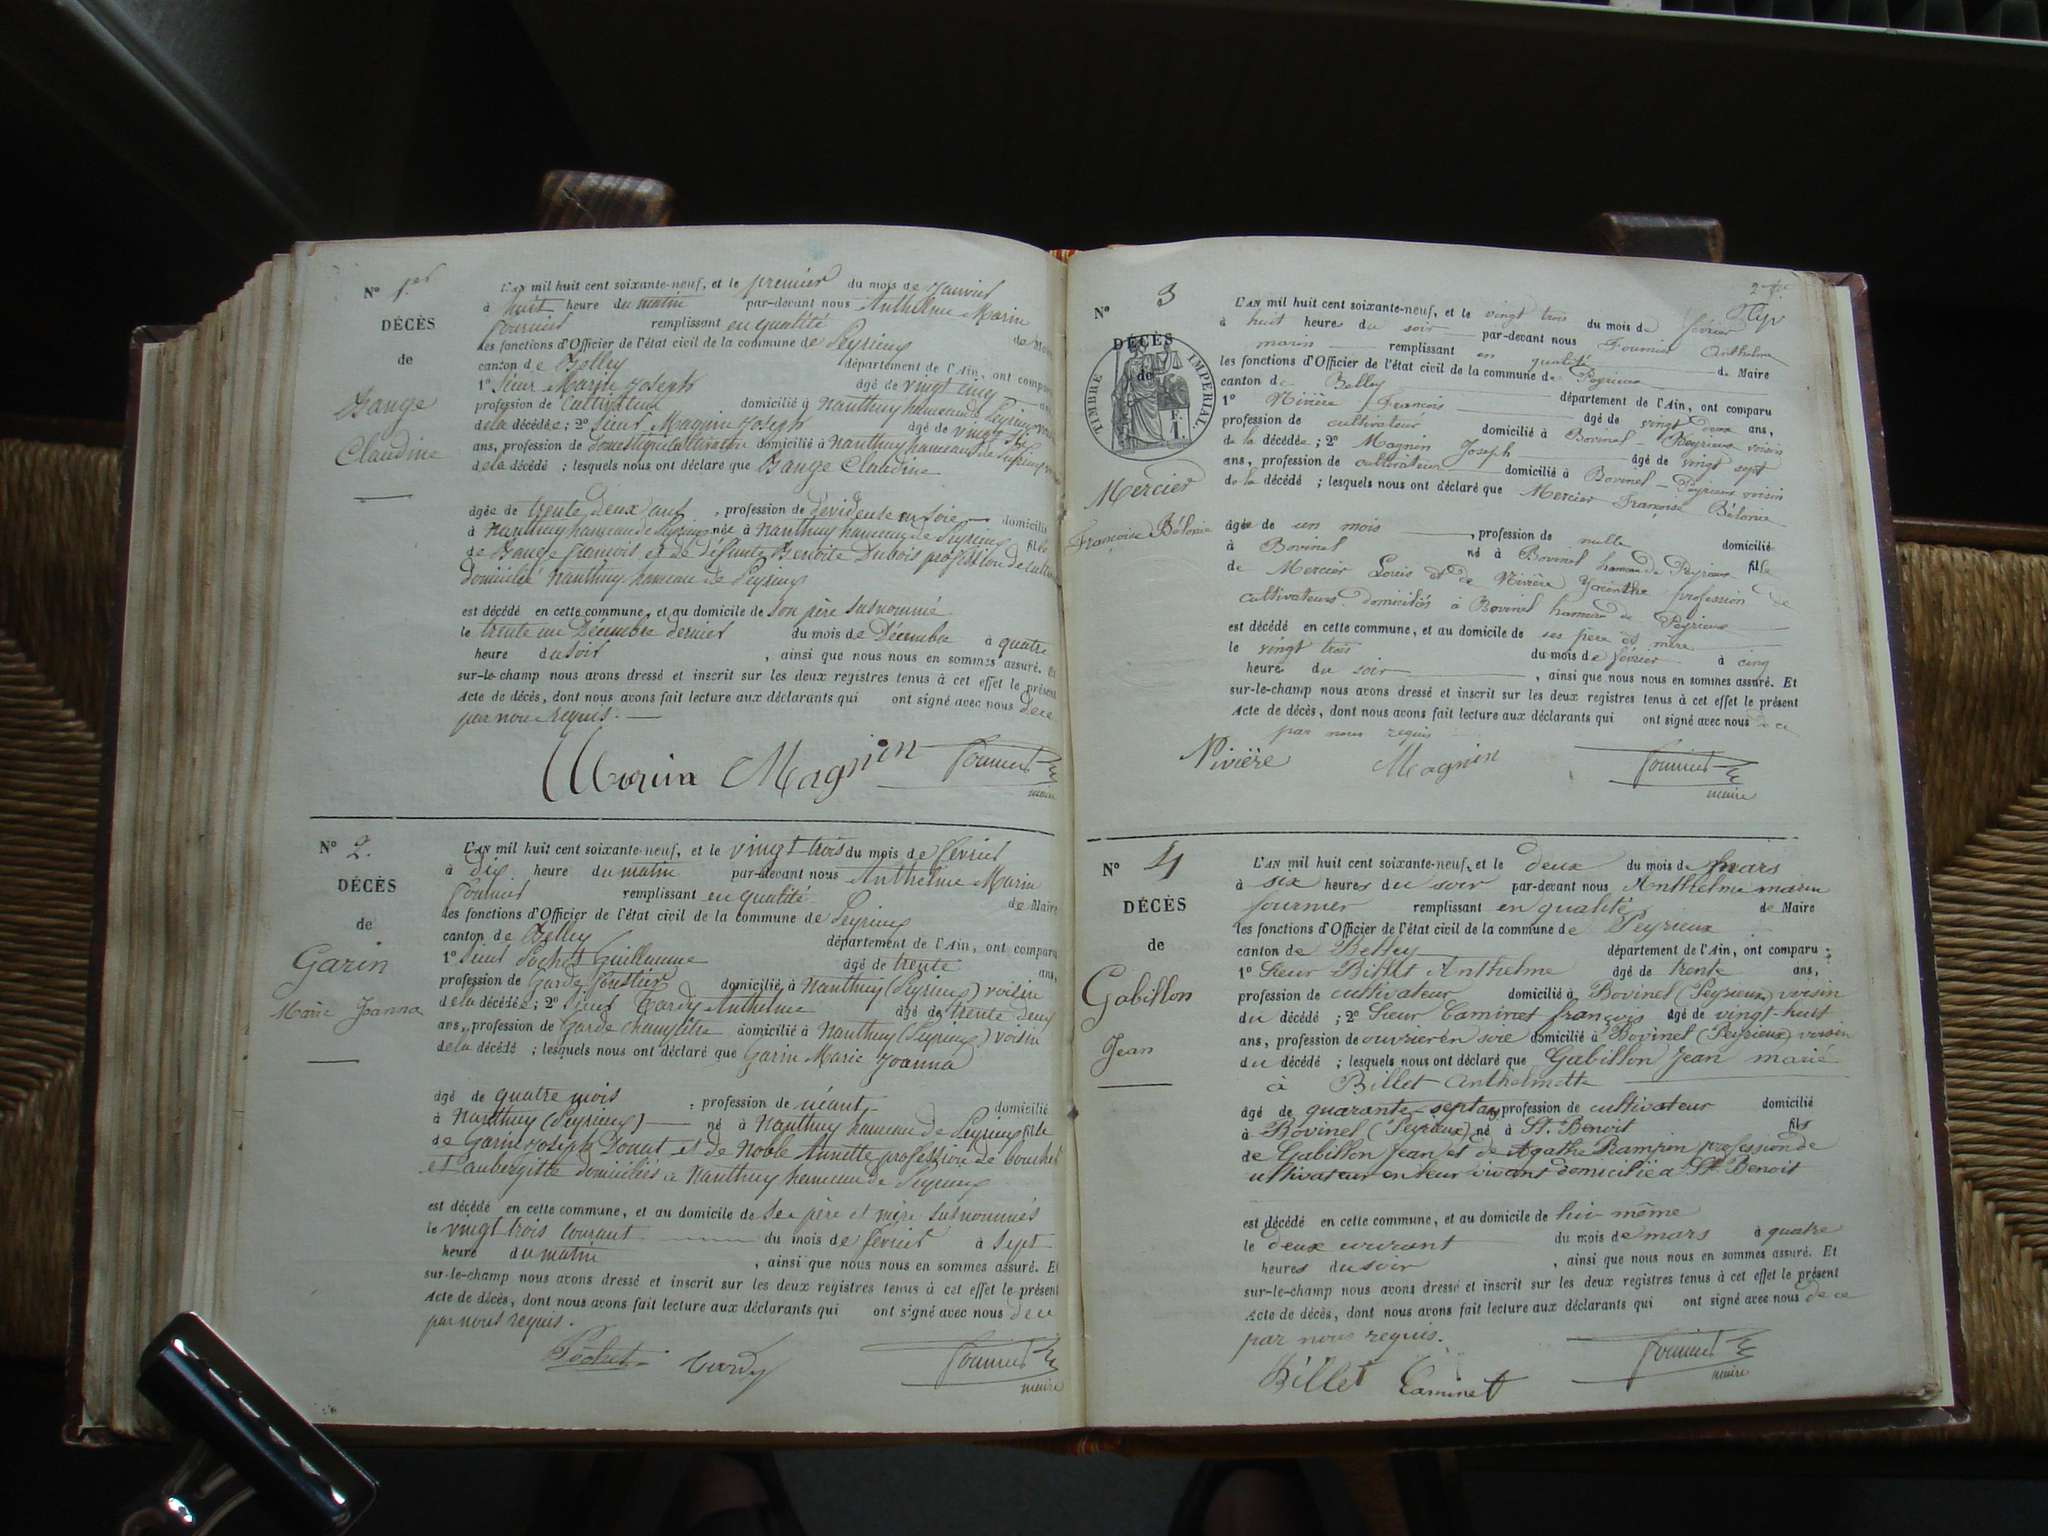 N° 1er
DÉCÈS
de
Bange
Claudine
L'AN mil huit cent soixante-neuf, et le premier du mois de Janvier
à huit heure du matin par-devant nous Anthelme Marin
fournier remplissant en qualité de Maire
les fonctions d'Officier de l'état civil de la commune de Peyrieux
canton de Belley département de l'Ain, ont comparu
1° Sieur Marin Joseph âgé de vingt cinq ans,
profession de Cultivateur domicilié à Nanthuy hameau de Peyrieux voisin
de la décédée; 2° Sieur Magnin Joseph âgé de vingt six
ans, profession de domestique Cultivateur domicilié à Nanthuy hameau de Peyrieux
de la décédé ; lesquels nous ont déclaré que Bange Claudine
âgée de trente deux ans, profession de devideuse en soie domicilié
à Nanthuy hameau de Peyrieux née à Nanthuy hameau de Peyrieux fille
de Bange françois et de défunte Benoite Dubois profession de cultiv
domicilié Nanthuy hameau de Peyrieux
est décédé en cette commune, et au domicile de son père susnommé
le trente un Décembre dernier du mois de Décembre à quatre
heure du soir, ainsi que nous nous en sommes assuré. Et
sur-le-champ nous avons dressé et inscrit sur les deux registres tenus à cet effet le présent
Acte de décès, dont nous avons fait lecture aux déclarants qui ont signé avec nous de ce
par nous requis.
Marin Magnin fournier
maire
N° 2.
DÉCÈS
de
Garin
Marie Joanna
L'AN mil huit cent soixante-neuf, et le vingt-trois du mois de février
à dix heure du matin par-devant nous Anthelme Marin
fournier remplissant en qualité de Maire
les fonctions d'Officier de l'état civil de la commune de Peyrieux
canton de Belley département de l'Ain, ont comparu
1° Sieur Pochet Guillaume âgé de trente ans,
profession de Garde forestier domicilié à Nanthuy (Peyrieux) voisin
de la décédée; 2° Sieur Tardy Anthelme âgé de trente deux
ans, profession de Garde champêtre domicilié à Nanthuy (Peyrieux) voisin
de la décédé ; lesquels nous ont déclaré que Garin Marie Joanna
âgé de quatre mois, profession de néant domicilié
à Nanthuy (Peyrieux) né à Nanthuy hameau de Peyrieux fille
de Garin Joseph Donat et de Noble Annette profession de boucher
et aubergiste domiciliés à Nanthuy hameau de Peyrieux
est décédé en cette commune, et au domicile de ses père et mère susnommés
le vingt trois courant du mois de février à sept
heure du matin, ainsi que nous nous en sommes assuré. Et
sur-le-champ nous avons dressé et inscrit sur les deux registres tenus à cet effet le présent
Acte de décès, dont nous avons fait lecture aux déclarants qui ont signé avec nous de ce
par nous requis.
Pochet Tardy fournier
maire
N° 3
DÉCÈS
de
TIMBRE IMPÉRIAL
Mercier
Françoise Bélonie
L'AN mil huit cent soixante-neuf, et le vingt trois du mois de février
à huit heures du soir par-devant nous Fournier Anthelme
marin remplissant en qualité de Maire
les fonctions d'Officier de l'état civil de la commune de Peyrieux
canton de Belley département de l'Ain, ont comparu
1° Nivière François âgé de vingt deux ans,
profession de cultivateur domicilié à Bovinel - Peyrieux voisin
de la décédée; 2° Magnin Joseph âgé de vingt sept
ans, profession de cultivateur domicilié à Bovinel - Peyrieux voisin
de la décédé ; lesquels nous ont déclaré que Mercier Françoise Bélonie
âgée de un mois, profession de nulle domicilié
à Bovinel né à Bovinel hameau de Peyrieux fille
de Mercier Louis et de Nivière Yacinthe profession de
cultivateurs domiciliés à Bovinel hameau de Peyrieux
est décédé en cette commune, et au domicile de ses père et mère
le vingt trois du mois de février à cinq
heure du soir, ainsi que nous nous en sommes assuré. Et
sur-le-champ nous avons dressé et inscrit sur les deux registres tenus à cet effet le présent
Acte de décès, dont nous avons fait lecture aux déclarants qui ont signé avec nous de ce
par nous requis
Nivière Magnin fournier
maire
N° 4
DÉCÈS
de
Gabillon
Jean
L'AN mil huit cent soixante-neuf, et le deux du mois de mars
à six heures du soir par-devant nous Anthelme marin
fournier remplissant en qualité de Maire
les fonctions d'Officier de l'état civil de la commune de Peyrieux
canton de Belley département de l'Ain, ont comparu :
1° Sieur Billet Anthelme âgé de trente ans,
profession de cultivateur domicilié à Bovinel (Peyrieux) voisin
du décédé ; 2° Sieur Caminet françois âgé de vingt-huit
ans, profession de ouvrier en soie domicilié à Bovinel (Peyrieux) voisin
du décédé ; lesquels nous ont déclaré que Gabillon Jean marié
à Billet Anthelmette
âgé de quarante-sept ans profession de cultivateur domicilié
à Bovinel (Peyrieux) né à St. Benoit fils
de Gabillon Jean et de Agathe Rampin profession de
cultivateur en leur vivant domicilié à St. Benoit
est décédé en cette commune, et au domicile de lui-même
le deux courant du mois de mars à quatre
heures du soir, ainsi que nous nous en sommes assuré. Et
sur-le-champ nous avons dressé et inscrit sur les deux registres tenus à cet effet le présent
Acte de décès, dont nous avons fait lecture aux déclarants qui ont signé avec nous de ce
par nous requis.
Billet Caminet fournier
maire